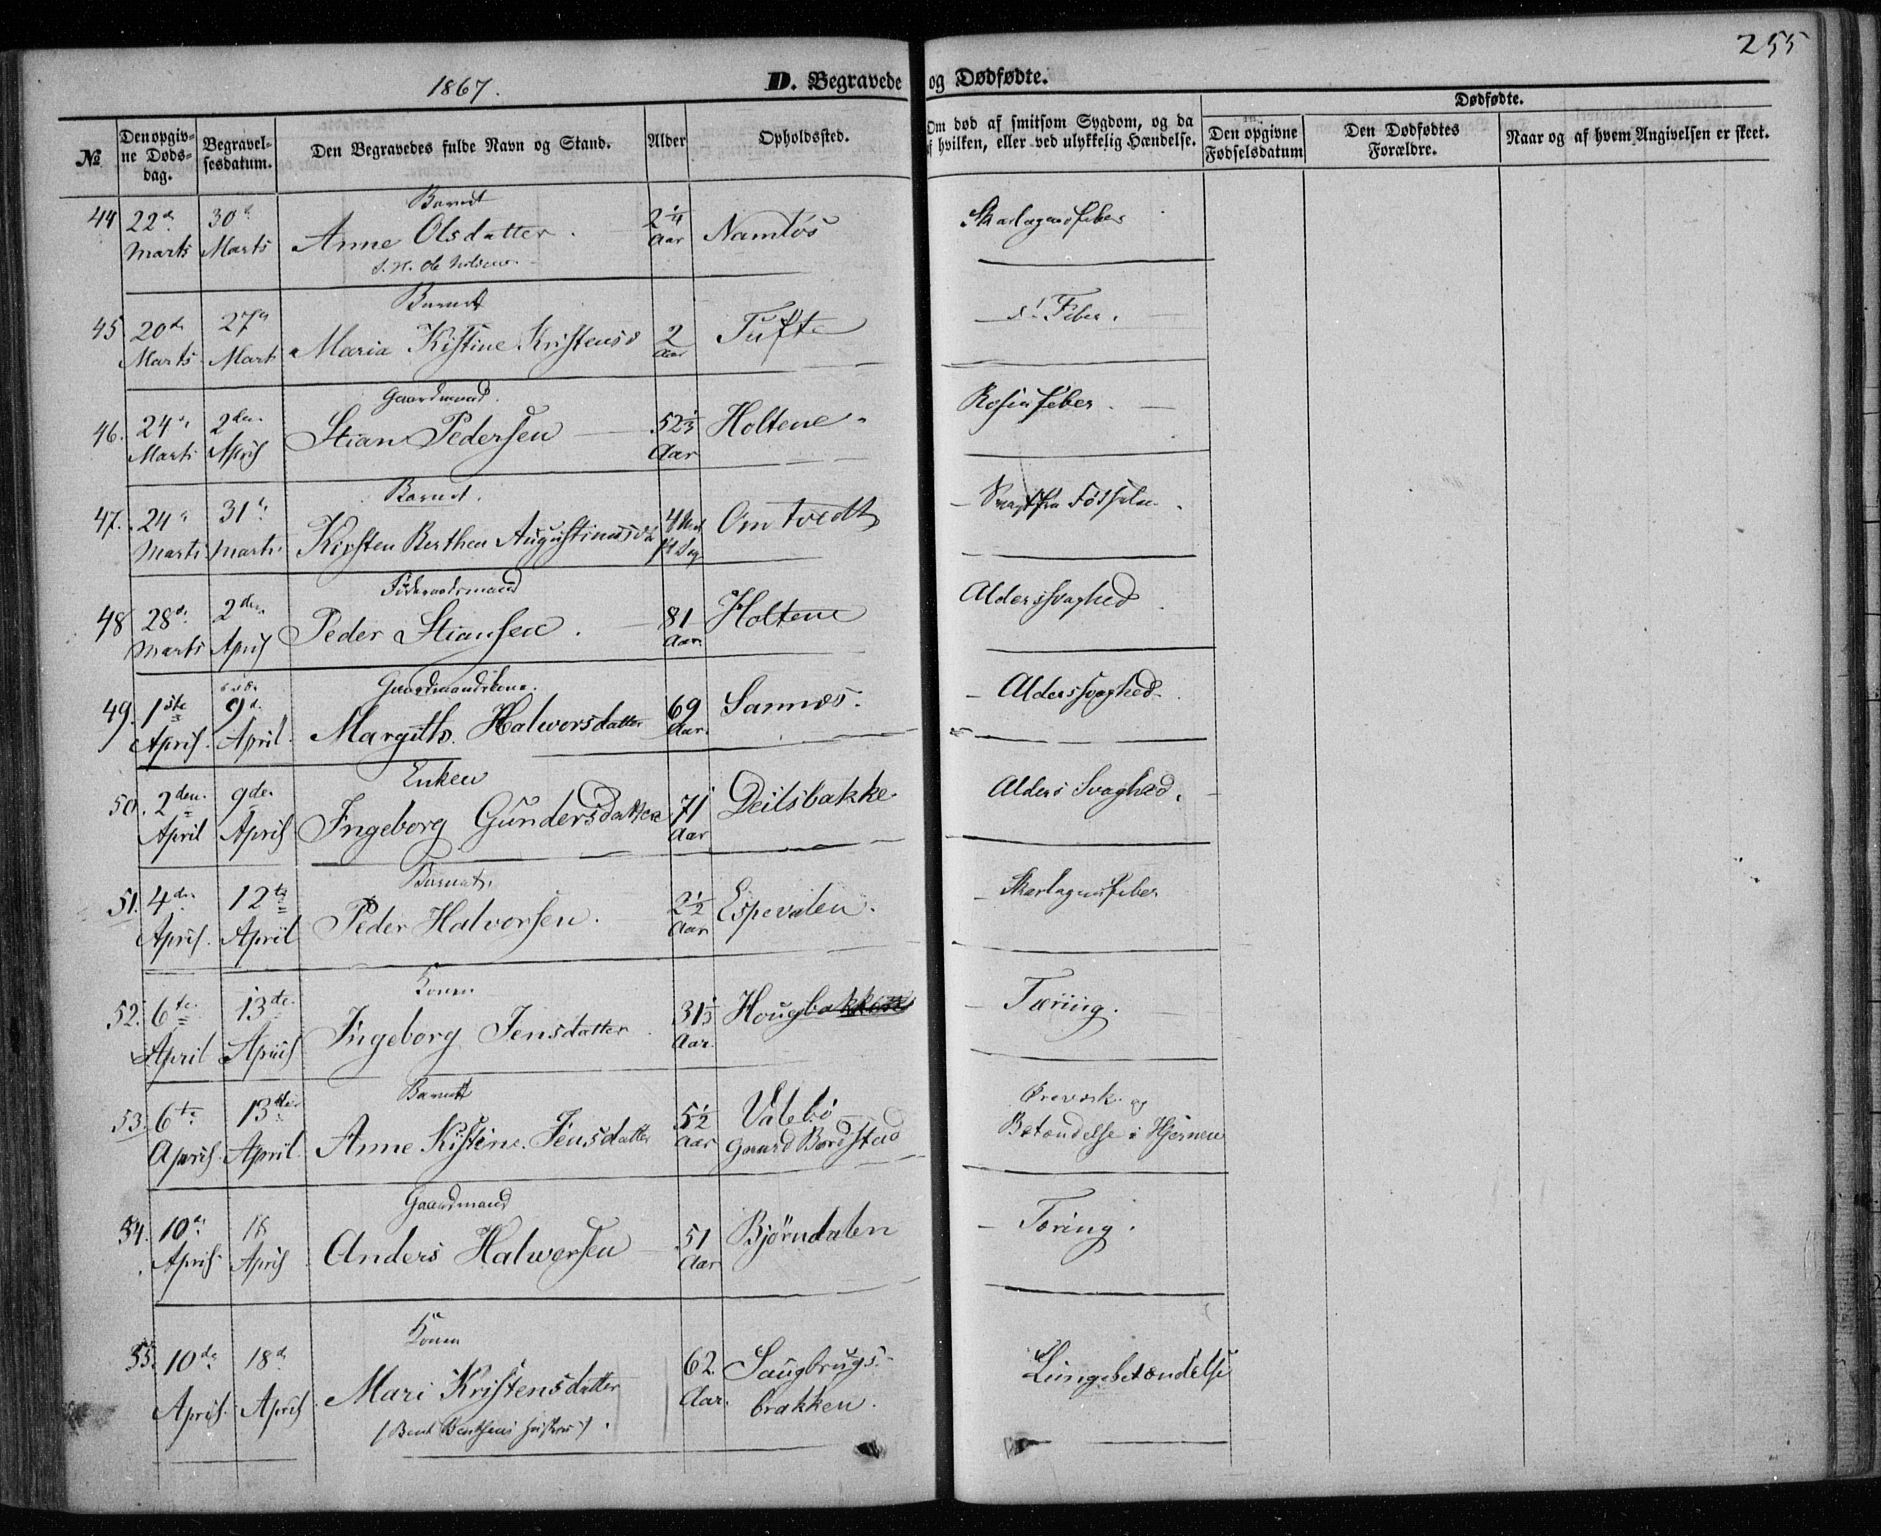 255
1867.
D. Begravede og Dødfødte.
№
Den opgivne Dødsdag.
Begravelsesdatum.
Den Begravedes fulde Navn og Stand.
Alder
Opholdssted.
Om død af smitsom Sygdom, og da af hvilken, eller ved ulykkelig Hændelse.
Dødfødte.
Den opgivne Fødselsdatum
Den Dødfødtes Forældre.
Naar og af hvem Angivelsen er skeet.
Barnet
44 22de 30te Anne Olsdatter. 2 1/4 Namløs Skarlagensfeber
Marts Marts Aar
Barnet
45 20de 27de Maria Kistine Kristensd 2 Tufte d: Feber.
Marts Marts Aar
Gaardmand.
46. 24de 2den Stian Pedersen 52 1/3 Holtene Rosenfeber.
Marts April Aar
Barnet.
47. 24de 31te Kirsten Berthea Omtvedt Svag fra Fødselen.
Marts Marts
Føderaadsmand
48 28de 2den Peder Stiansen. 81 Holtene Alderssvaghed
Marts April Aar
Gaardmandskone.
49. 1ste 9de Margith Halvorsdatter 69 Sannes. Alderssvaghed.
April. April. Aar.
Enken
50. 2den 9de Ingeborg Gundersdatter 71 Deilsbakke Alders Svaghed.
April April Aar
Barnet.
51. 4de 12te Peder Halvorsen. 2 1/2 Espevalen. Skarlagensfeber
April. April Aar
Konen
52. 6te 13de Ingeborg Jensdatter 31 1/3 Hougbakken Tæring.
April April Aar.
Barnet
53. 6te 13de Anne Kistine Jensdatter 5 1/2 Valebø Øreværk og
April. April. Aar Gaard Betændelse i Hjernen
Gaardmand
54. 10de 18 Anders Halworsen 51 Bjørndalen Tæring.
April. April Aar
Konen
55. 10de 18de Mari Kristensdatter 62 Saugbrugs- Lungebetændelse
April. April Aar. brakken.
(Bent Bentsens Hustru).